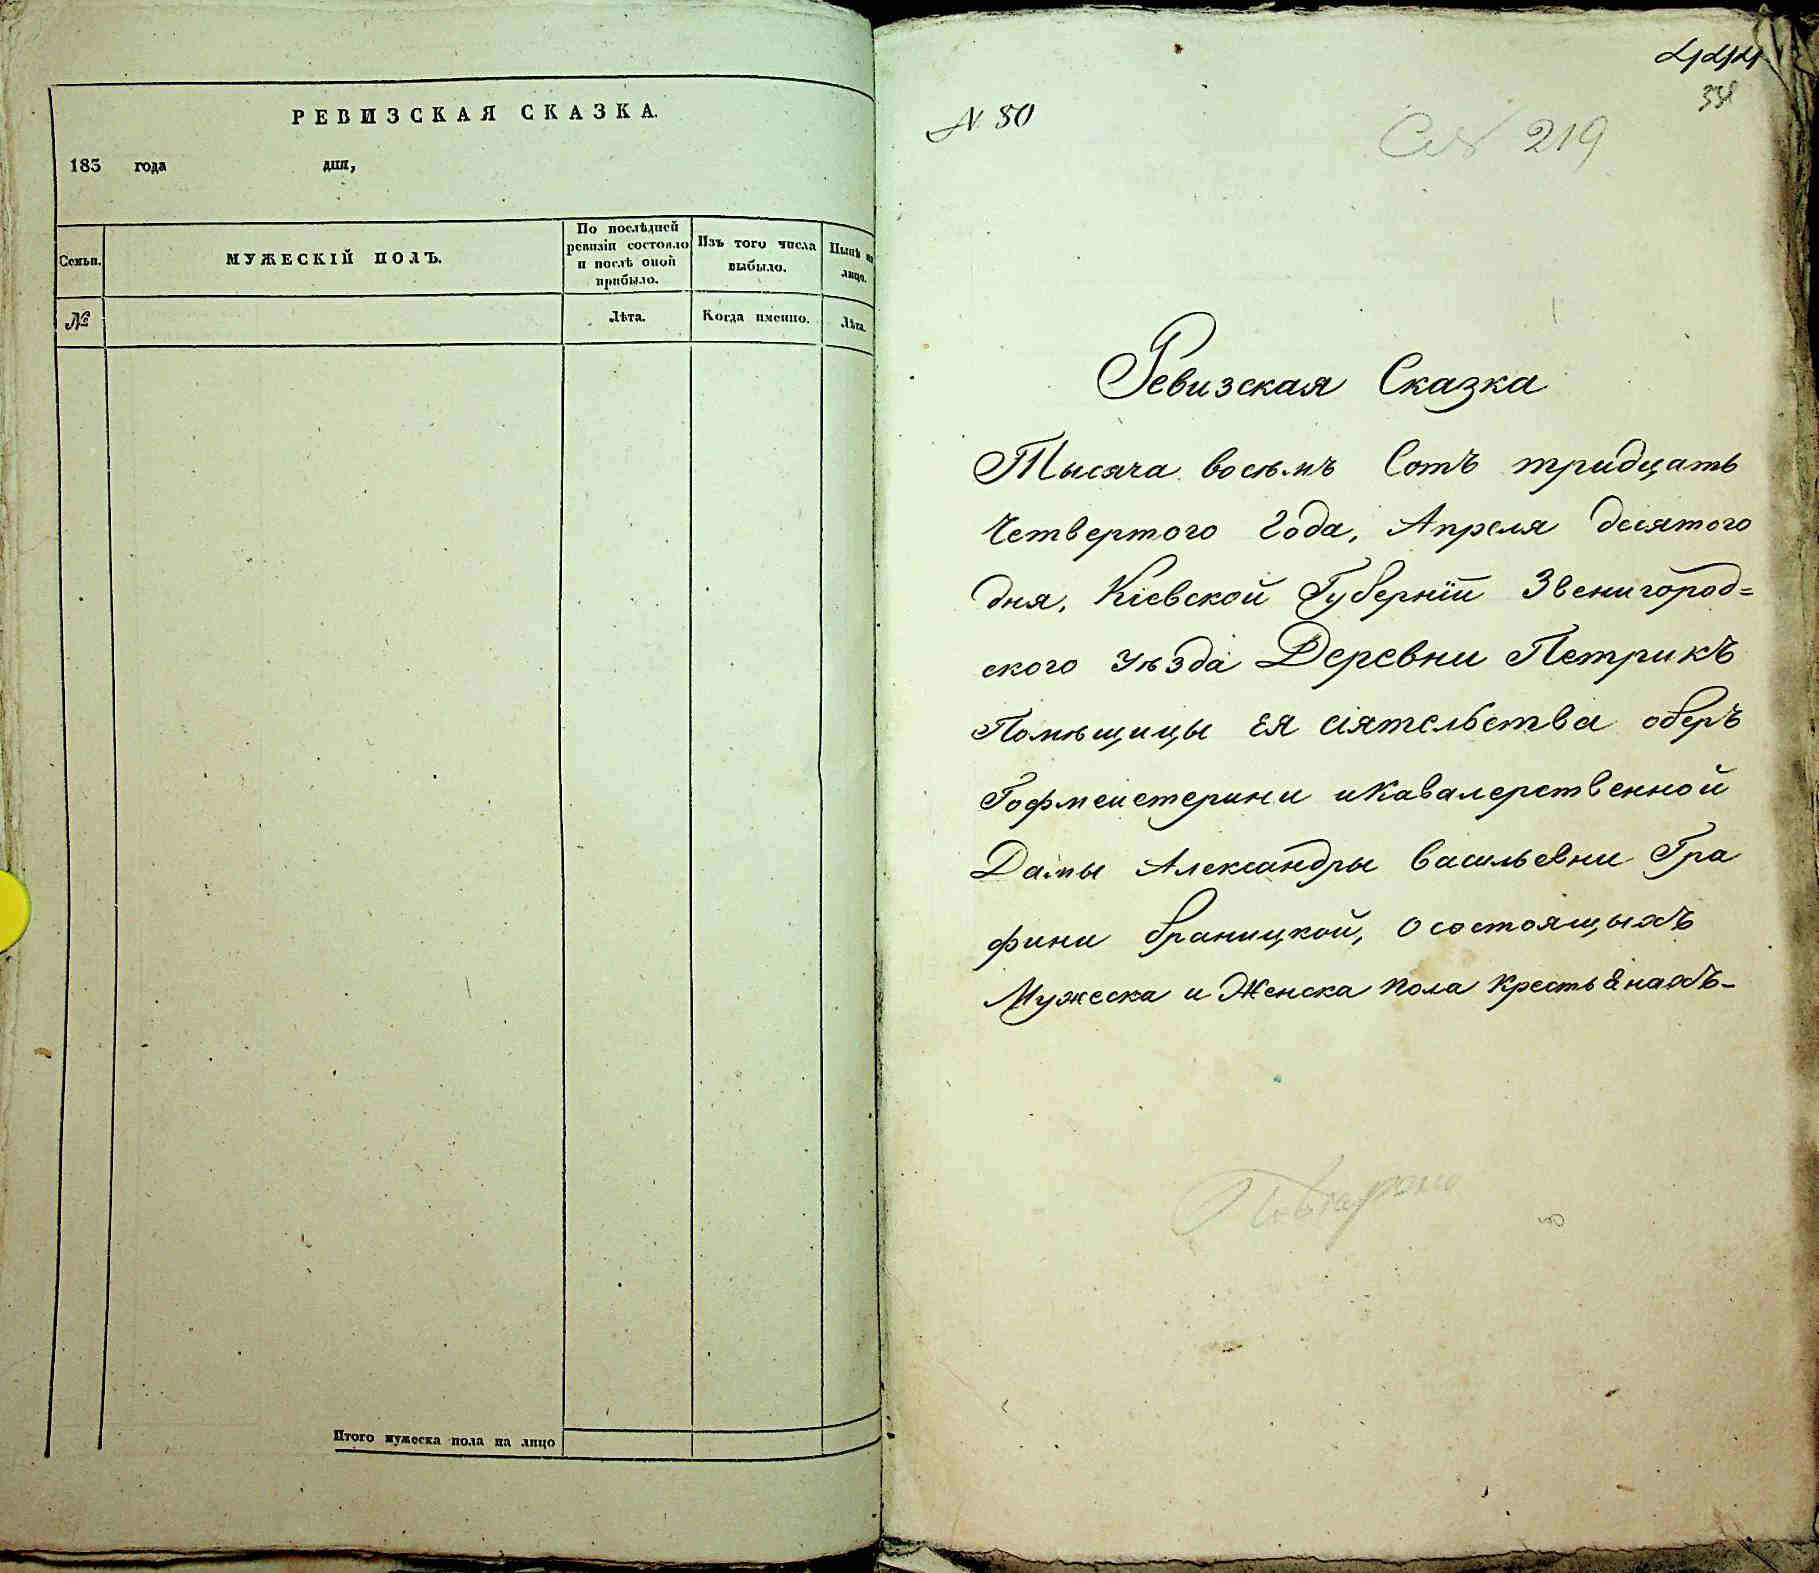 РЕВИЗСКАЯ СКАЗКА.
183 года дня,
Семьи.
МУЖЕСКІЙ ПОЛЪ.
По послѣдней
ревизіи состояло
и послѣ оной
прибыло.
Изъ того числа
выбыло.
Нынѣ на
лицо.
№
Лѣта.
Когда именно.
Лѣта.
Итого мужеска пола на лицо
444
N 80
219
Ревизская Сказка
Тысяча восѣмъ Сотъ тридцать
Четвертого Года, Апреля десятого
дня, Кіевской Губерніи Звенигород=
ского уѣзда Деревни Петрикъ
Помѣщицы ея сіятельства оберъ
Гофмеистерини икавалерственной
Дамы Александры васильевни Гра
фини браницкой, о состоящыхъ
Мужеска и Женска пола крестьянахъ-